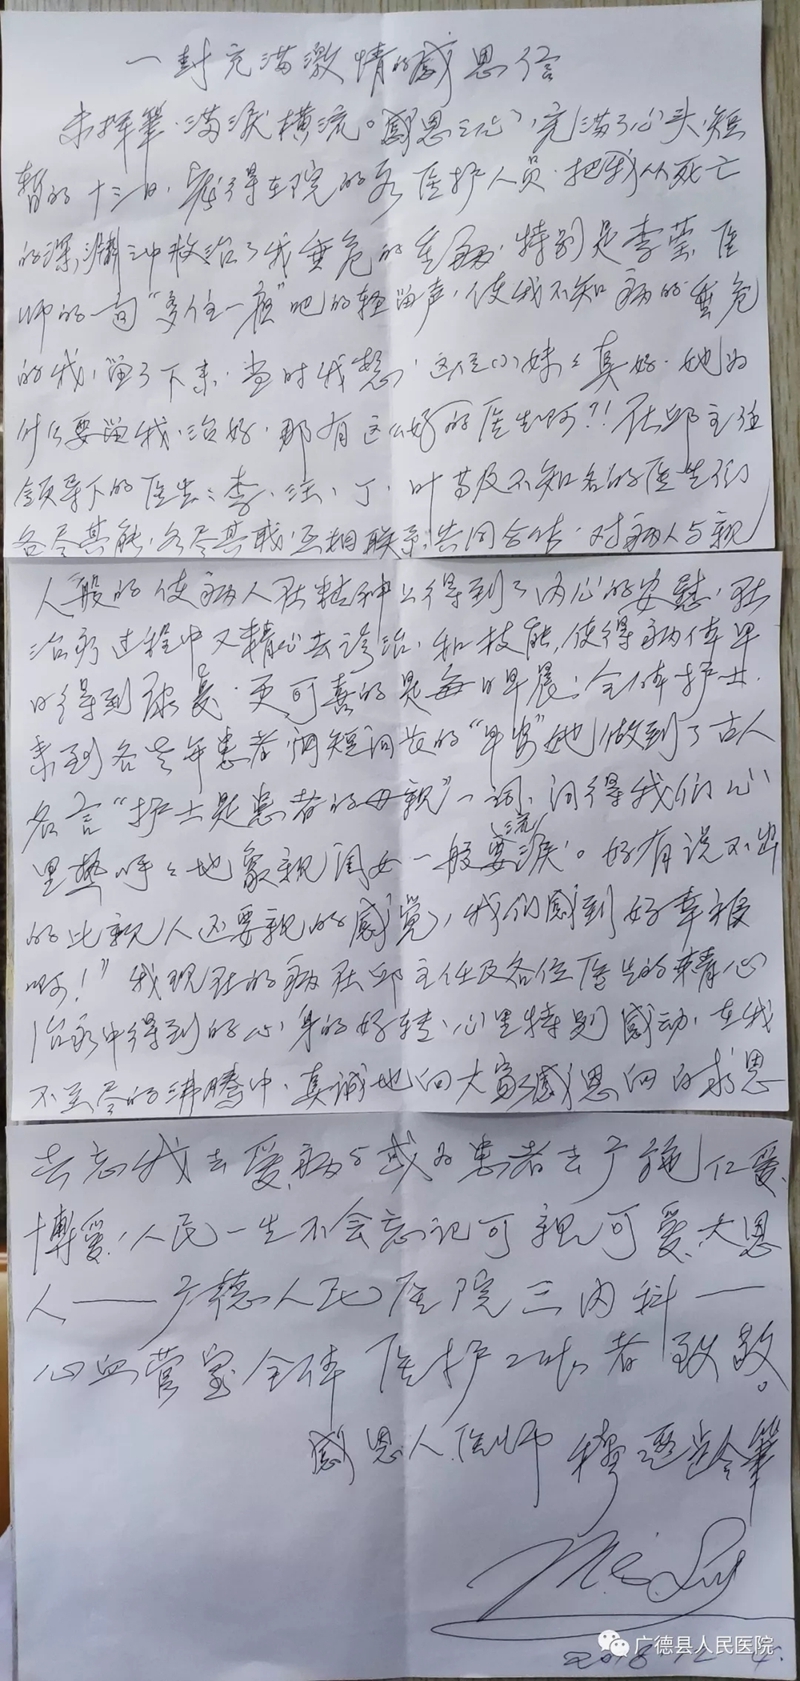 一封充满激情的感恩信
未挥笔、满泪横流。感恩之心,充满了心头,短
暂的十三日,贵院的各医护人员,把我从死亡
的深渊中救治了我垂危的生命,特别是李莹医
师的一句“多住一夜”吧的轻溜声,使我不知病的垂危
的我,留了下来,当时我想,这位小妹妹真好,她为
什么要留我,治好,那有这么好的医生啊?!在邱主任
领导下的医生:李、汪、丁、叶等及不知名的医生们
各尽其能,各尽其职,互相联系,共同合作,对病人与亲
人般的使病人在精神上得到了内心的安慰,在
治疗过程中又精心去诊治,和技能,使得病体早
日得到康复,更可喜的是每日早晨:全体护士
来到各患者间短词长的“早安”她们做到了古人
名言“护士是患者的母亲”一词,问得我们心
里热呼呼地象亲闺女一般要流泪。好有说不出
的比亲人还要亲的感觉,我们感到好幸福
啊!”我现在的病在邱主任及各位医生的精心
治疗中得到的心、身的好转,心里特别感动,在我
不尽的沸腾中,真诚地向大家感恩向白求恩
去忘我去爱病人或为患者去广施仁爱、
博爱,人民一生不会忘记可亲可爱、大恩
人——广德人民医院三内科——
心血管室全体医护工作者致敬。
感恩人医师 穆
2018 12 4.
广德县人民医院